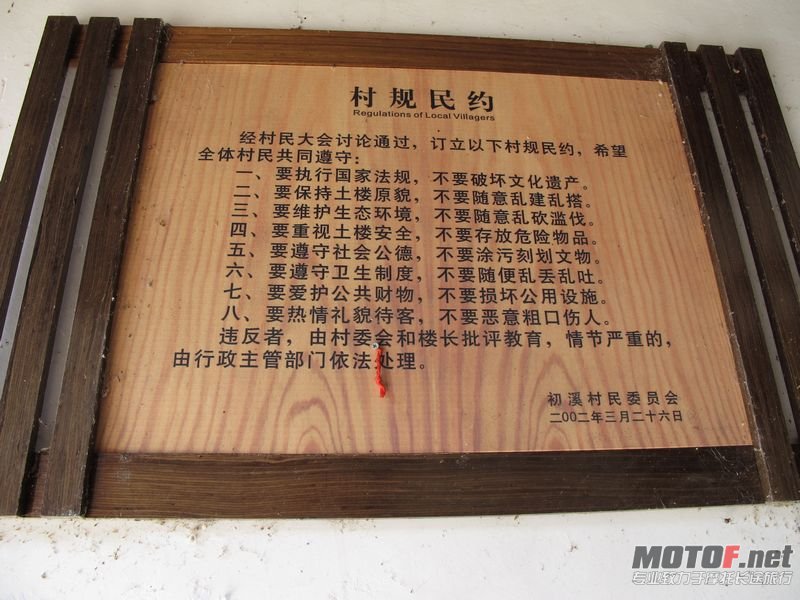 村规民约
Regulations of Local Villagers
经村民大会讨论通过，订立以下村规民约，希望
全体村民共同遵守：
一、要执行国家法规，不要破坏文化遗产。
二、要保持土楼原貌，不要随意乱建乱搭。
三、要维护生态环境，不要随意乱砍滥伐。
四、要重视土楼安全，不要存放危险物品。
五、要遵守社会公德，不要涂污刻划文物。
六、要遵守卫生制度，不要随便乱丢乱吐。
七、要爱护公共财物，不要损坏公用设施。
八、要热情礼貌待客，不要恶意粗口伤人。
违反者，由村委会和楼长批评教育，情节严重的，
由行政主管部门依法处理。
初溪村民委员会
二00二年三月二十六日
MOTOF.net
专业致力于摩托长途旅行